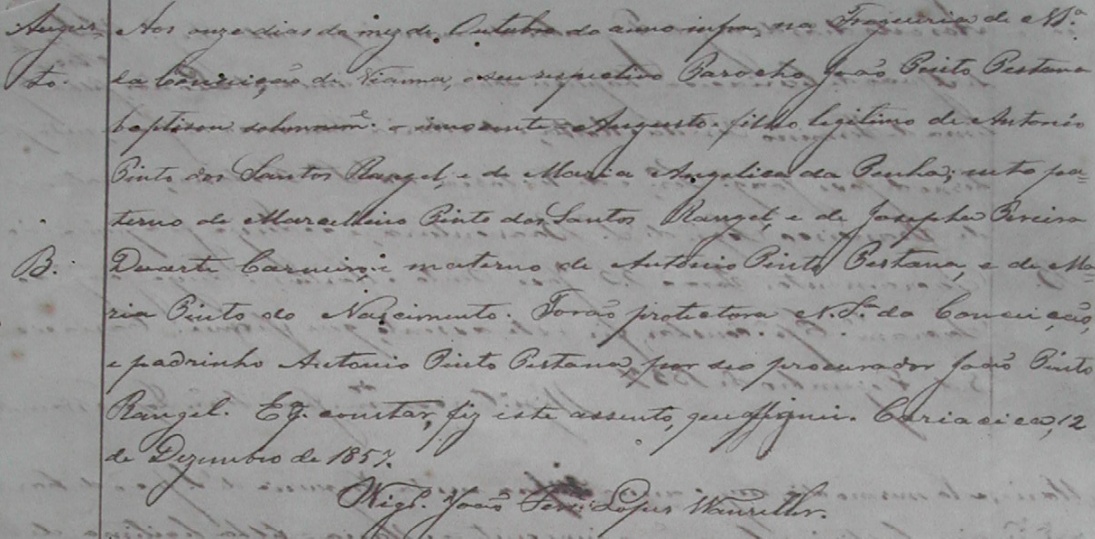 Augus- Aos onze dias do mez de Outubro do anno infra, na Freguezia de N. Sª
to. da Conceição de Vianna, o seu respectivo Parocho João Pinto Pestana
baptisou solemnem.e o innocente Augusto, filho legitimo de Antonio
Pinto dos Santos Rangel, e de Maria Angelica da Penha; neto pa=
terno de Marcellino Pinto dos Santos Rangel, e de Josepha Pereira
B. Duarte Carneiro: e materno de Antonio Pinto Pestana, e de Ma=
ria Pinto do Nascimento. Forão protectora N. Sª da Conceição,
e padrinho Antonio Pinto Pestana, por seo procurador João Pinto
Rangel. E p.ª constar, fiz este assento, que assignei. Cariacica, 12
de Dezembro de 1857.
Vig.º João Lopes Wanzeller.